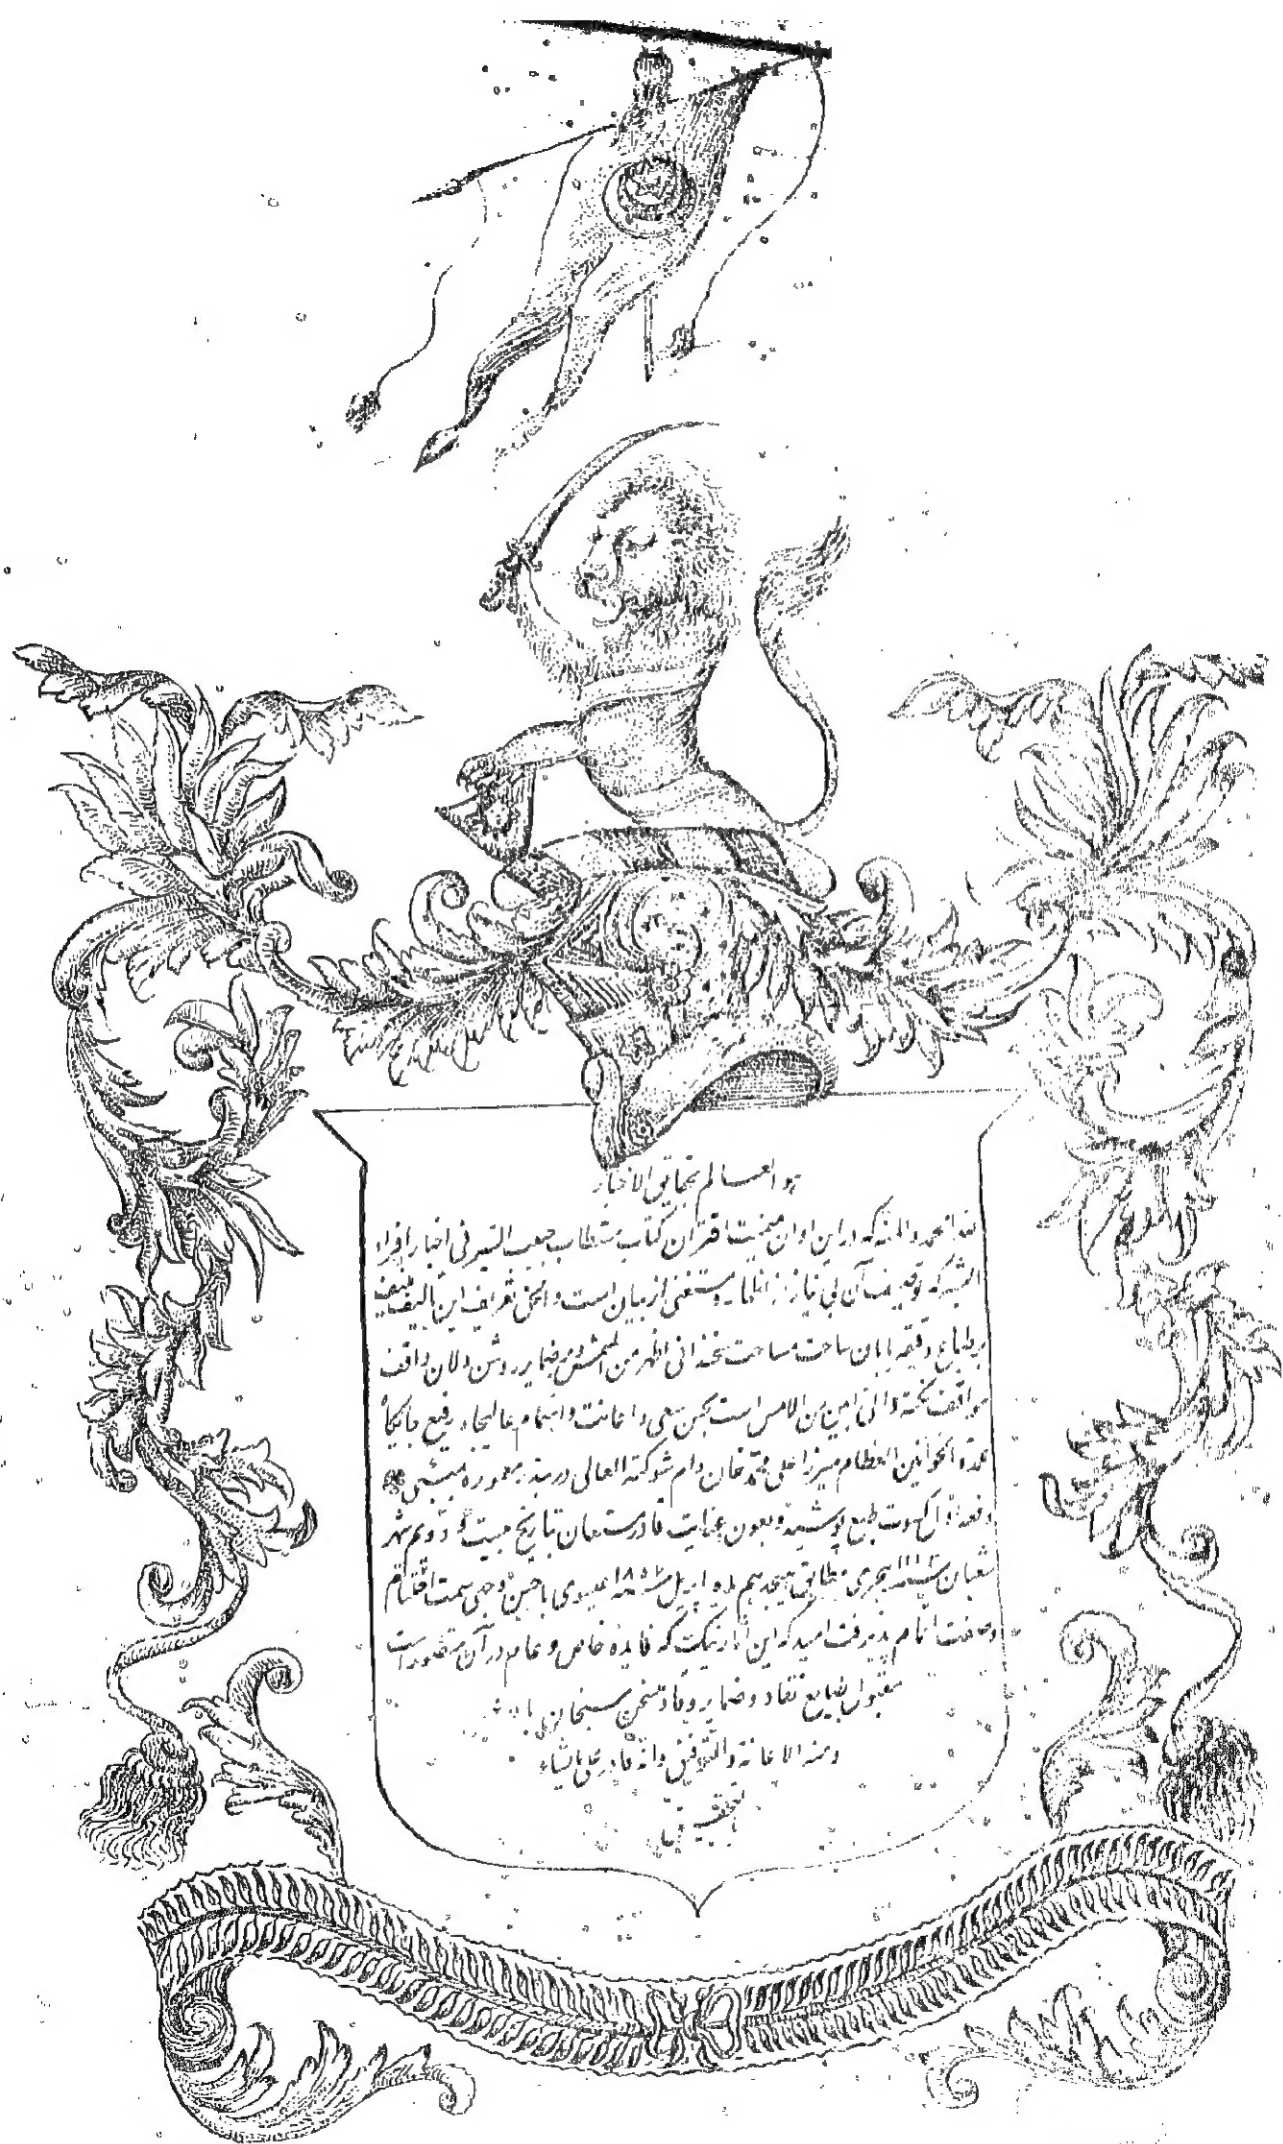 هو العسالم بحقایق الاخبار
لله الحمد والمنه که در این اوان میمنت اقتران کتاب مستطاب حبیب السیر فی اخبار افراد
البشر که توصیف آن بی نیاز از اظهار و مستغنی از بیان است و الحق تعریف این تالیف منیف
بر طباع دقیقه یابان ساحت مساحت سخندانی اظهر من الشمس و بر ضمایر روشن دلان واقف
مواقف نکته دانی ابین من الامس است بحسن سعی و اعانت و اهتمام عالیجاه رفیع جایگاه
عمدة الخوانین العظام میرزا علی محمد خان دام شوکته العالی در بندر معموره بمبئی
دفعه اول کسوت طبع پوشیده و بعون عنایت قادر مستعان بتاریخ بیست و دویم شهر
شعبان هجری مطابق هیجدهم ماه اپریل عیسوی باحسن وجهی سمت اختتام
و صفت اتمام پذیرفت امید که این آثار نیکت که فایده خاص و عام در آن متصور است
مقبول طبایع نقاد و ضمایر وقاد سخن سنجان
ومنه الاعانة والتوفیق وانه قادر علی مایشاء